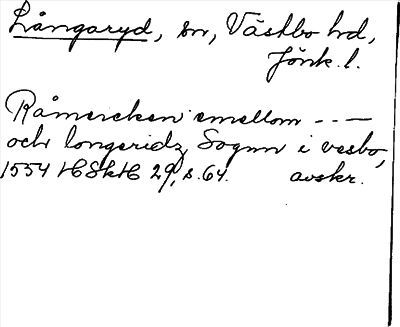 Långaryd, sn, Västbo hd,
Jönk. l.
Råmercken emellom - - —
och longeridz Sognn i vesbo,
1554 HSkH 29, s. 64. avskr.